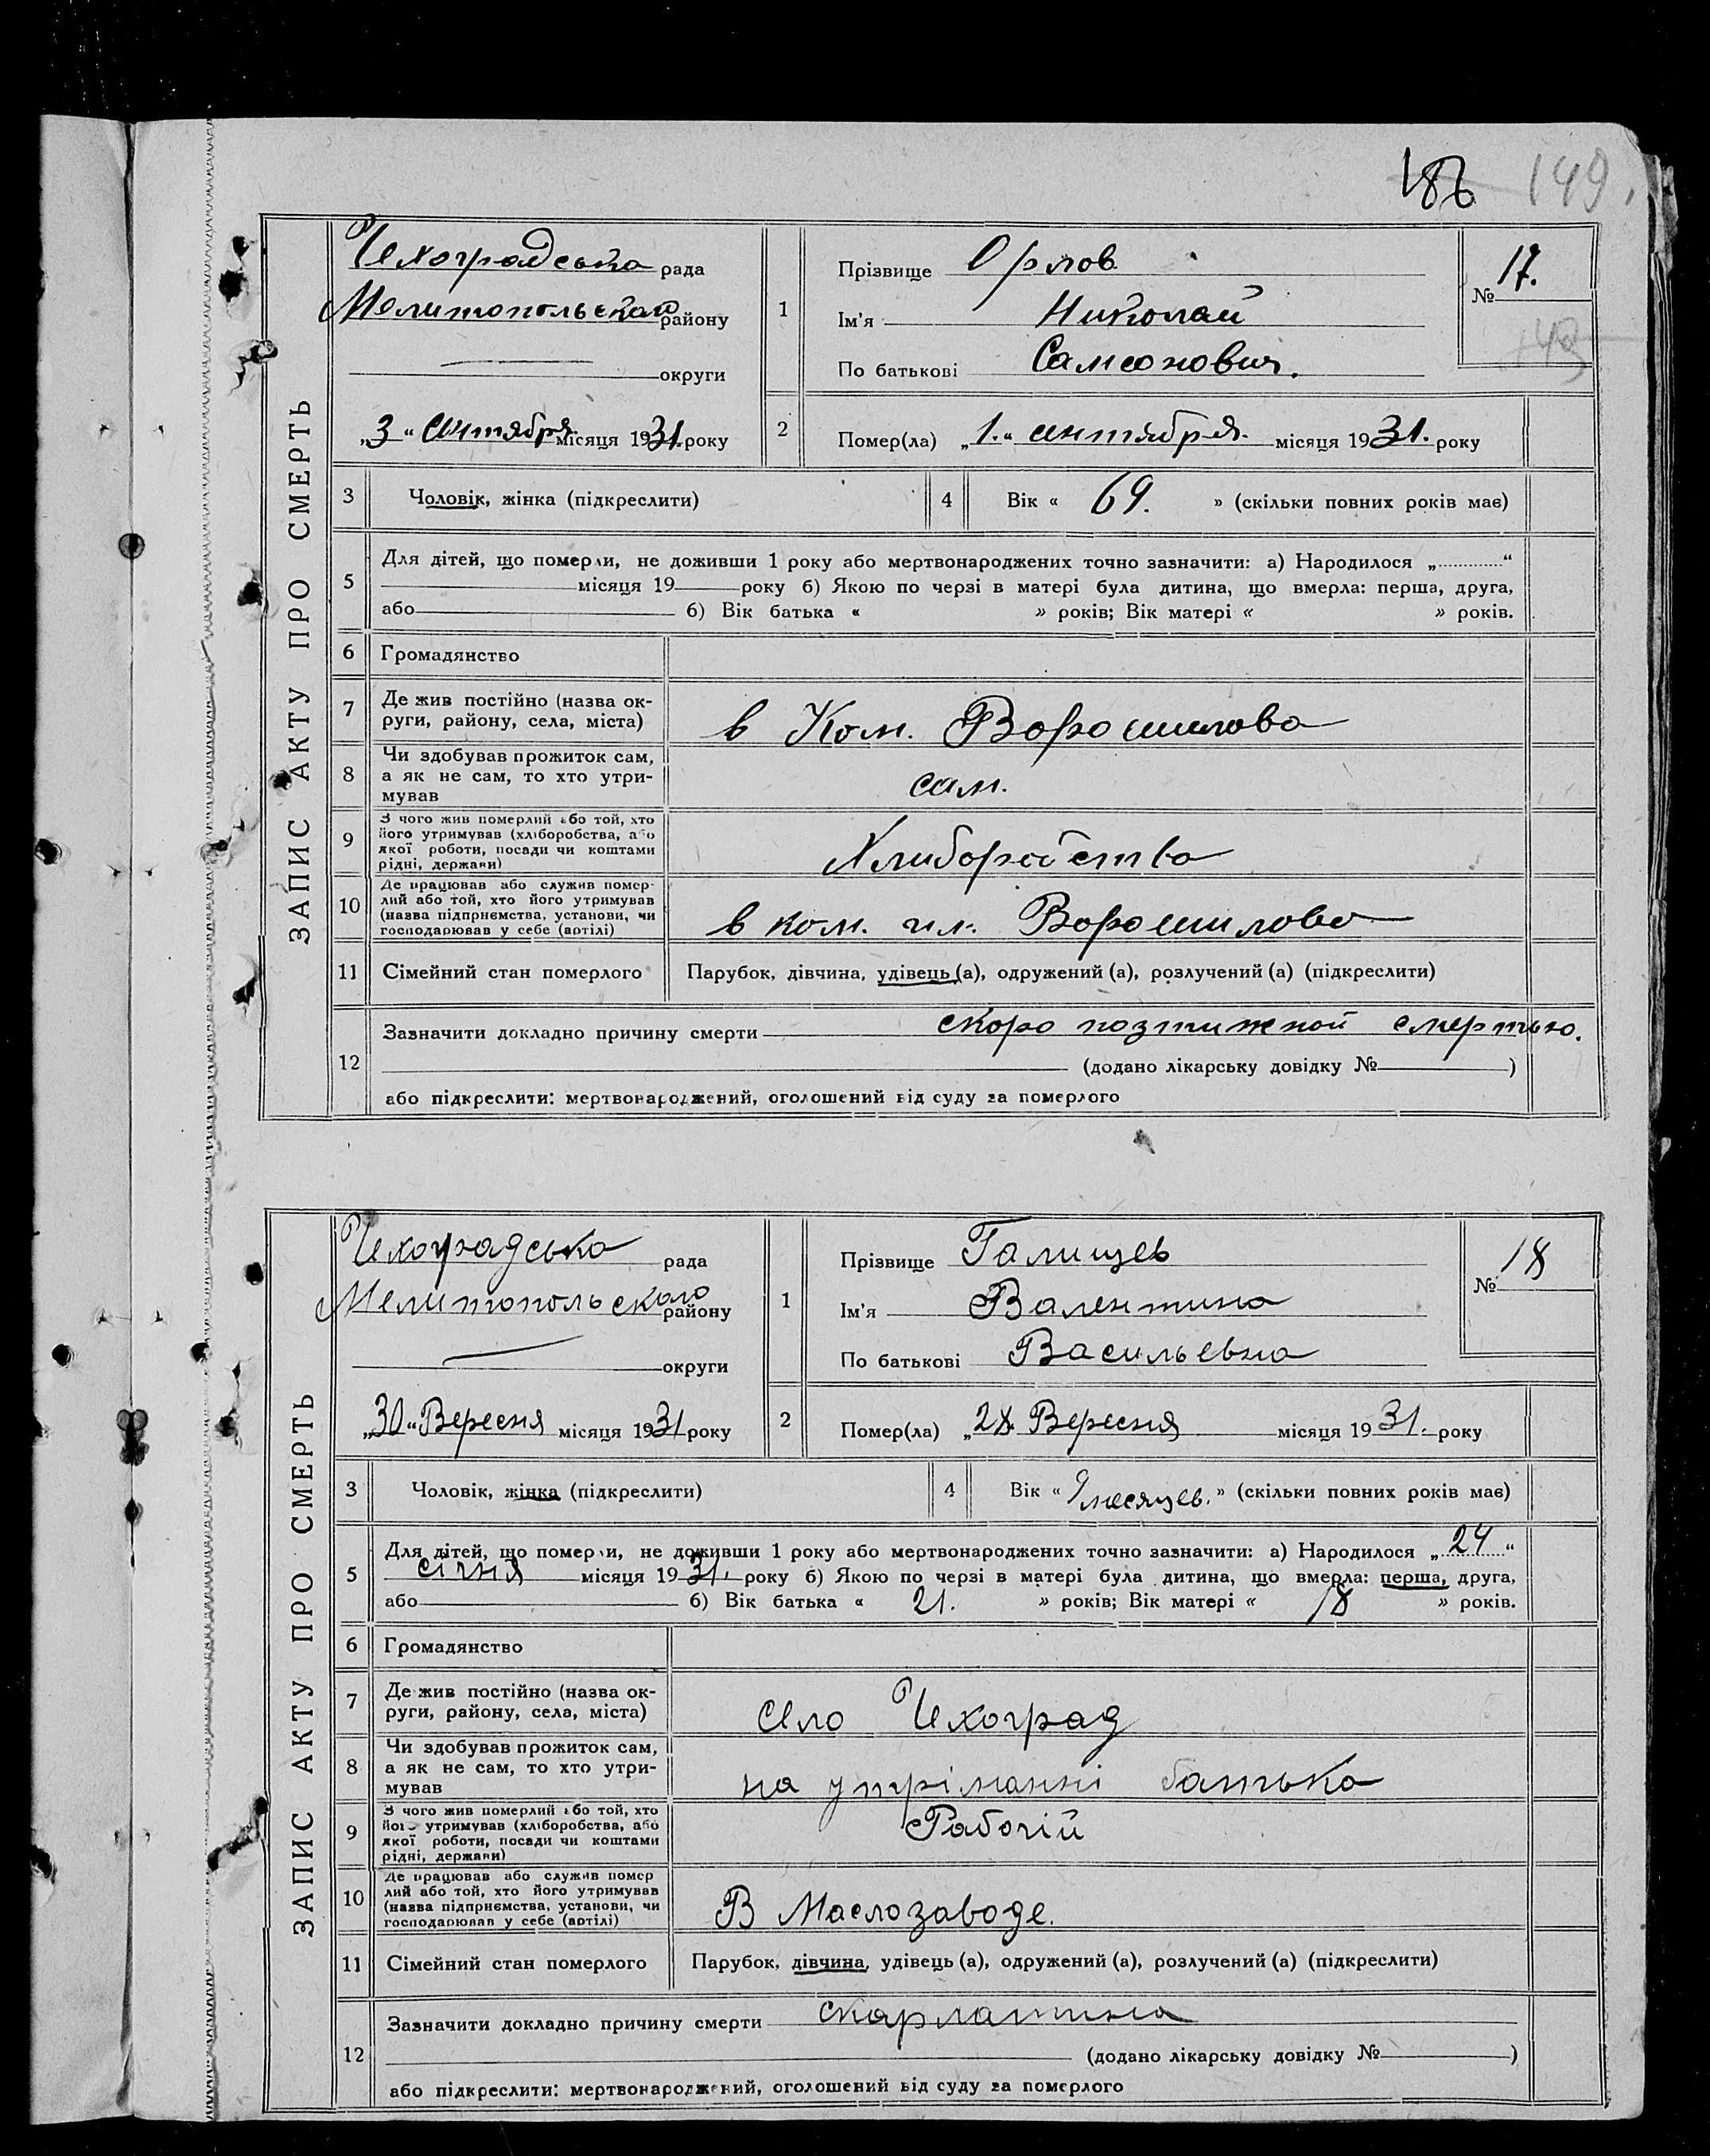 186 149.
ЗАПИС АКТУ ПРО СМЕРТЬ
Чехоградська рада
Мелитопольского району
округи
„3“ сентября місяця 1931. року
1
Прізвище Орлов
Ім'я Николай
По батькові Самсонович.
№ 17.
2
Помер(ла) „1.“ сентября. місяця 1931. року
3 Чоловік, жінка (підкреслити)
4 Вік « 69. » (скільки повних років має)
5
Для дітей, що померли, не доживши 1 року або мертвонароджених точно зазначити: а) Народилося „ “
місяця 19 року б) Якою по черзі в матері була дитина, що вмерла: перша, друга,
або б) Вік батька « » років; Вік матері « » років.
6 Громадянство
7
Де жив постійно (назва ок-
руги, району, села, міста)
в Ком. Ворошилова
8
Чи здобував прожиток сам,
а як не сам, то хто утри-
мував
сам.
9
З чого жив померлий або той, хто
його утримував (хліборобства, або
якої роботи, посади чи коштами
рідні, держави)
Хлиборобства
10
Де працював або служив помер-
лий або той, хто його утримував
(назва підприємства, установи, чи
господарював у себе (артілі)
в ком. им. Ворошилова
11 Сімейний стан померлого
Парубок, дівчина, удівець (а), одружений (а), розлучений (а) (підкреслити)
12
Зазначити докладно причину смерти скоро смертью.
(додано лікарську довідку № )
або підкреслити: мертвонароджений, оголошений від суду за померлого
ЗАПИС АКТУ ПРО СМЕРТЬ
Чехоградсько рада
Мелитопольского району
округи
„30“ Вересня місяця 1931 року
1
Прізвище Галищев
Ім'я Валентина
По батькові Васильевна
№ 18
2
Помер(ла) „28 Вересня місяця 1931. року
3 Чоловік, жінка (підкреслити)
4 Вік « месяцев. » (скільки повних років має)
5
Для дітей, що померли, не доживши 1 року або мертвонароджених точно зазначити: а) Народилося „24“
січня місяця 1931. року б) Якою по черзі в матері була дитина, що вмерла: перша, друга,
або б) Вік батька « 21. » років; Вік матері « 18 » років.
6 Громадянство
7
Де жив постійно (назва ок-
руги, району, села, міста)
село Чехоград
8
Чи здобував прожиток сам,
а як не сам, то хто утри-
мував
на утріманні батька
9
З чого жив померлий або той, хто
його утримував (хліборобства, або
якої роботи, посади чи коштами
рідні, держави)
Рабочій
10
Де працював або служив помер
лий або той, хто його утримував
(назва підприємства, установи, чи
господарював у себе (артілі)
В Маслозаводе.
11 Сімейний стан померлого
Парубок, дівчина, удівець (а), одружений (а), розлучений (а) (підкреслити)
12
Зазначити докладно причину смерти скарлатина
(додано лікарську довідку № )
або підкреслити: мертвонароджений, оголошений від суду за померлого